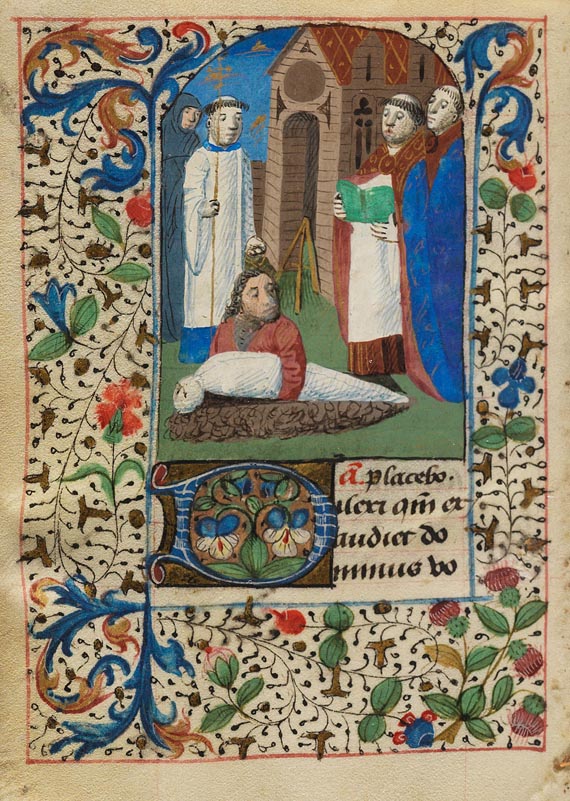 A̅. placebo.
Dilexi qm̅ ex
audiet do
minus vo